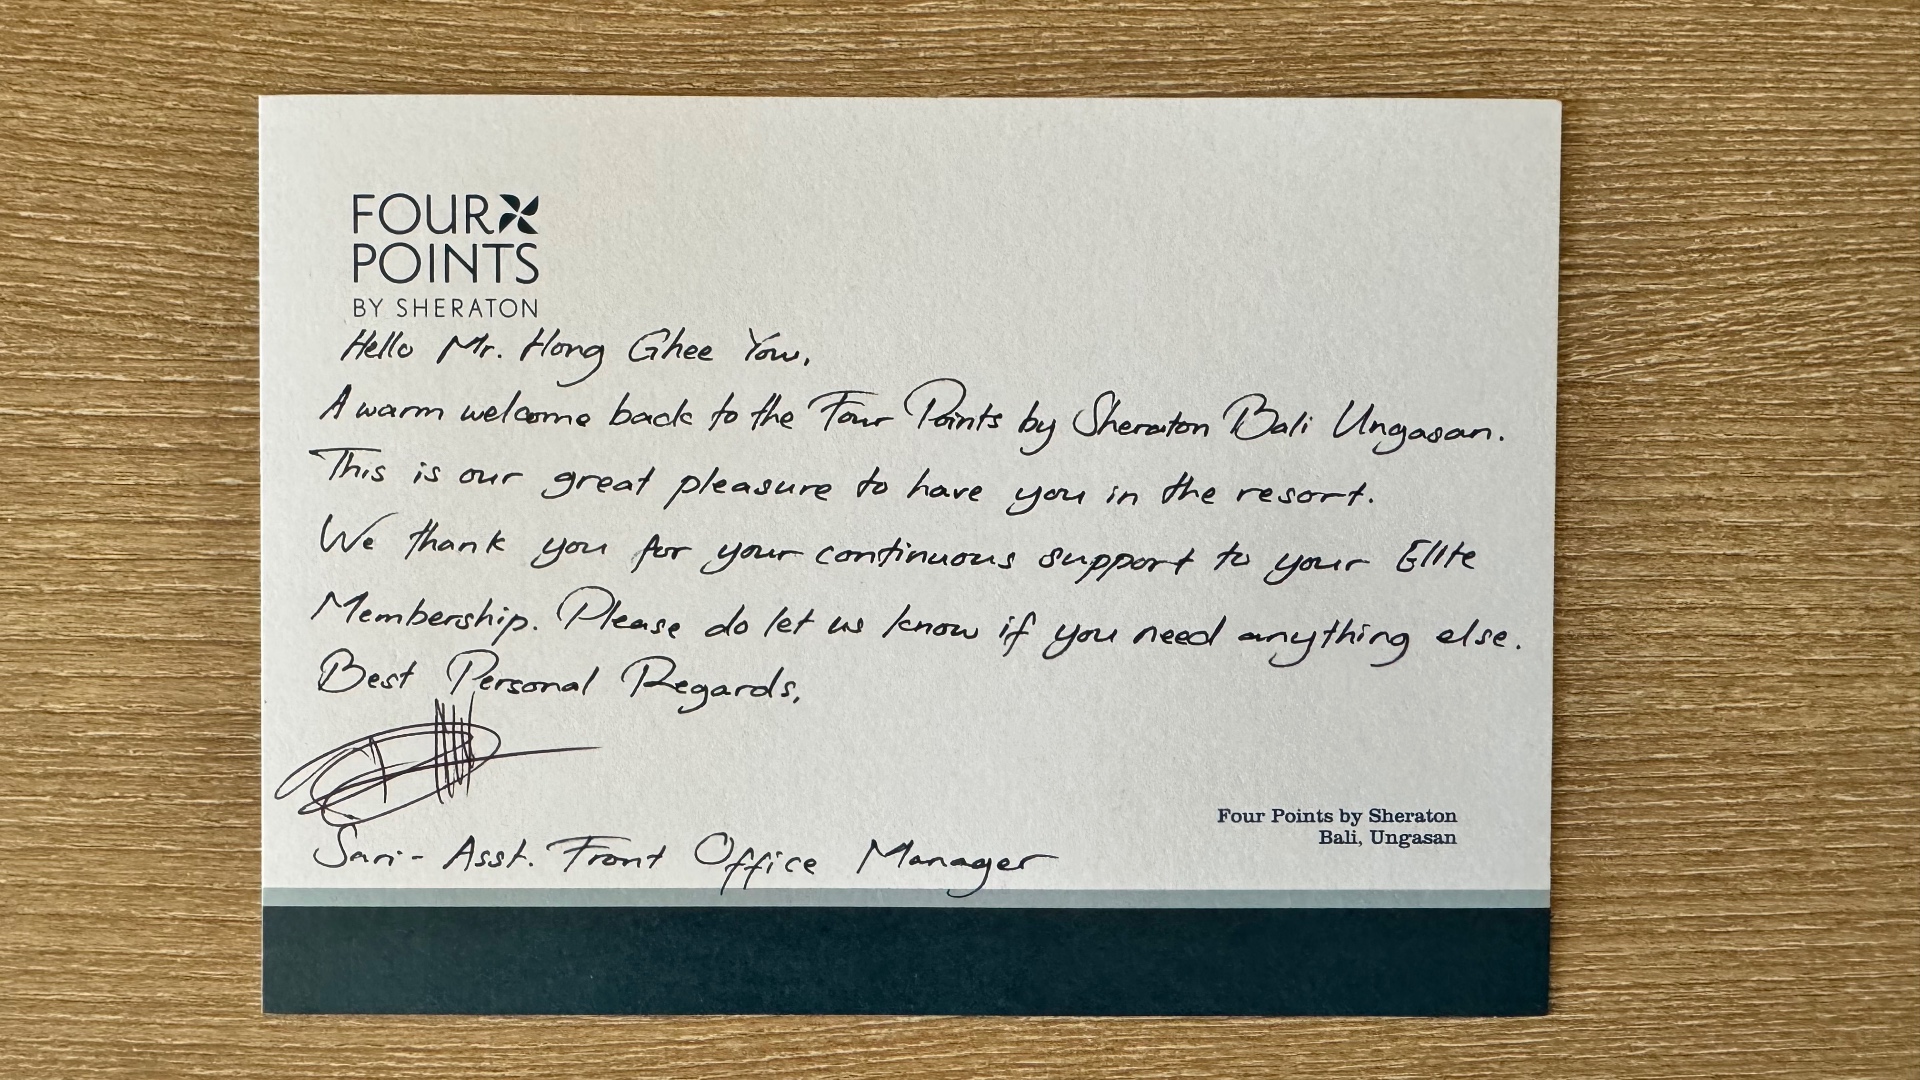 FOUR
POINTS
BY SHERATON
Hello Mr. Hong Ghee Yow,
A warm welcome back to the Four Points by Sheraton Bali Ungasan.
This is our great pleasure to have you in the resort.
We thank you for your continuous support to your Elite
Membership. Please do let us know if you need anything else.
Best Personal Regards,
Sari- Asst. Front Office Manager
Four Points by Sheraton
Bali, Ungasan